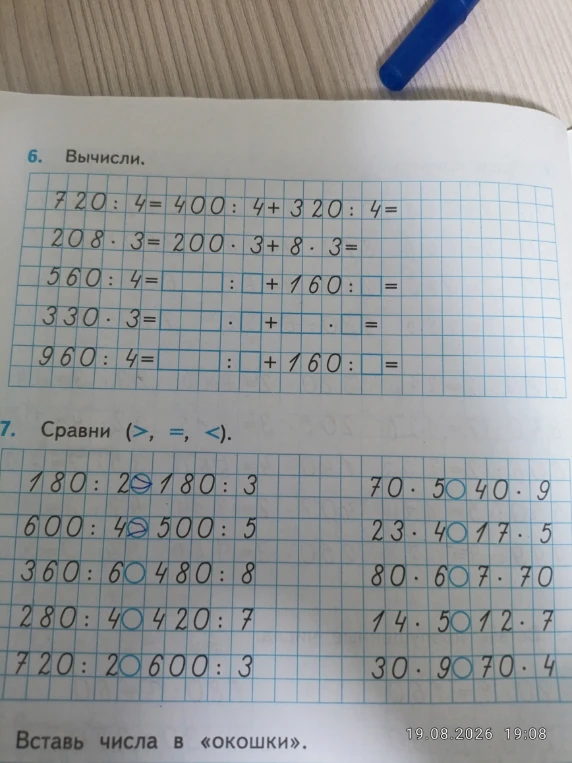 6. Вычисли.
720 : 4 = 400 : 4 + 320 : 4 =
208 · 3 = 200 · 3 + 8 · 3 =
560 : 4 = □ : □ + 160 : □ =
330 · 3 = □ · □ + □ · □ =
960 : 4 = □ : □ + 160 : □ =
7. Сравни (>, =, <).
180 : 2 > 180 : 3
600 : 4 > 500 : 5
360 : 6 ○ 480 : 8
280 : 4 ○ 420 : 7
720 : 2 ○ 600 : 3
70 · 5 ○ 40 · 9
23 · 4 ○ 17 · 5
80 · 6 ○ 7 · 70
14 · 5 ○ 12 · 7
30 · 9 ○ 70 · 4
Вставь числа в «окошки».
19.08.2026 19:08